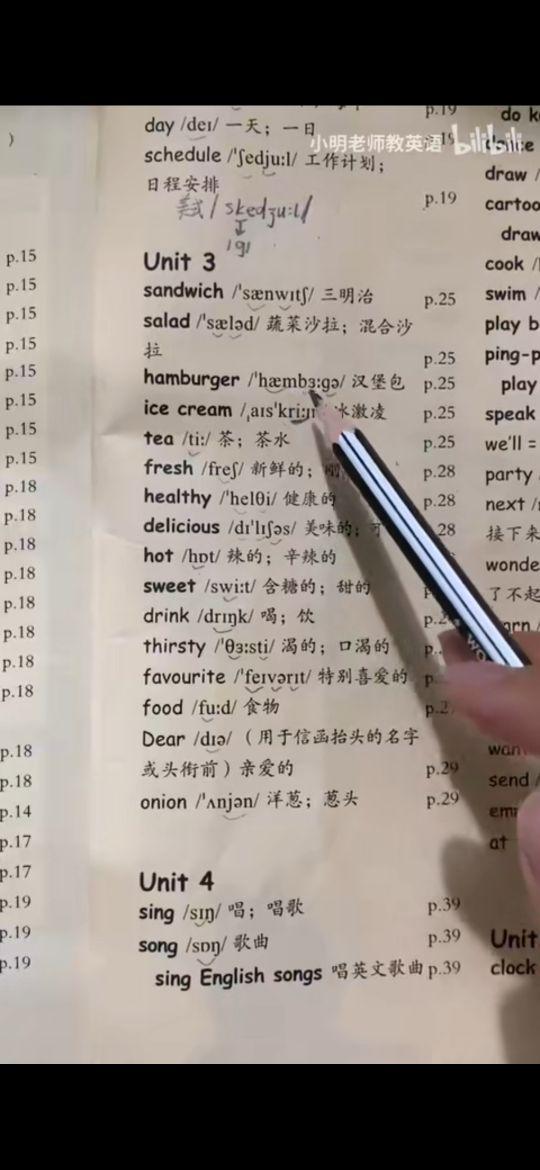 )
p.15
p.15
p.15
p.15
p.15
p.15
p.15
p.15
p.18
p.18
p.18
p.18
p.18
p.18
p.18
p.18
p.18
p.18
p.14
p.17
p.17
p.19
p.19
p.19
小明老师教英语 bilibili
p.19
day /deɪ/ 一天；一日
schedule /ˈʃedjuːl/ 工作计划；
日程安排 p.19
美式 / skedʒu:l/
/g/
Unit 3
sandwich /ˈsænwɪtʃ/ 三明治 p.25
salad /ˈsæləd/ 蔬菜沙拉；混合沙
拉 p.25
hamburger /ˈhæmbɜːgə/ 汉堡包 p.25
ice cream /ˌaɪsˈkriː 冰激凌 p.25
tea /tiː/ 茶；茶水 p.25
fresh /freʃ/ 新鲜的； p.28
healthy /ˈhelθi/ 健康的 p.28
delicious /dɪˈlɪʃəs/ 美味的；可 28
hot /hɒt/ 辣的；辛辣的
sweet /swiːt/ 含糖的；甜的
drink /drɪŋk/ 喝；饮
thirsty /ˈθɜːsti/ 渴的；口渴的
favourite /ˈfeɪvərɪt/ 特别喜爱的
food /fuːd/ 食物
Dear /dɪə/ （用于信函抬头的名字
或头衔前）亲爱的 p.29
onion /ˈʌnjən/ 洋葱；葱头 p.29
Unit 4
sing /sɪŋ/ 唱；唱歌 p.39
song /sɒŋ/ 歌曲 p.39
sing English songs 唱英文歌曲 p.39
do
draw
cartoo
draw
cook /
swim /
play b
ping-p
play
speak
we'll =
party
next /
接下来
wonde
了不起
send /
at
Unit
clock